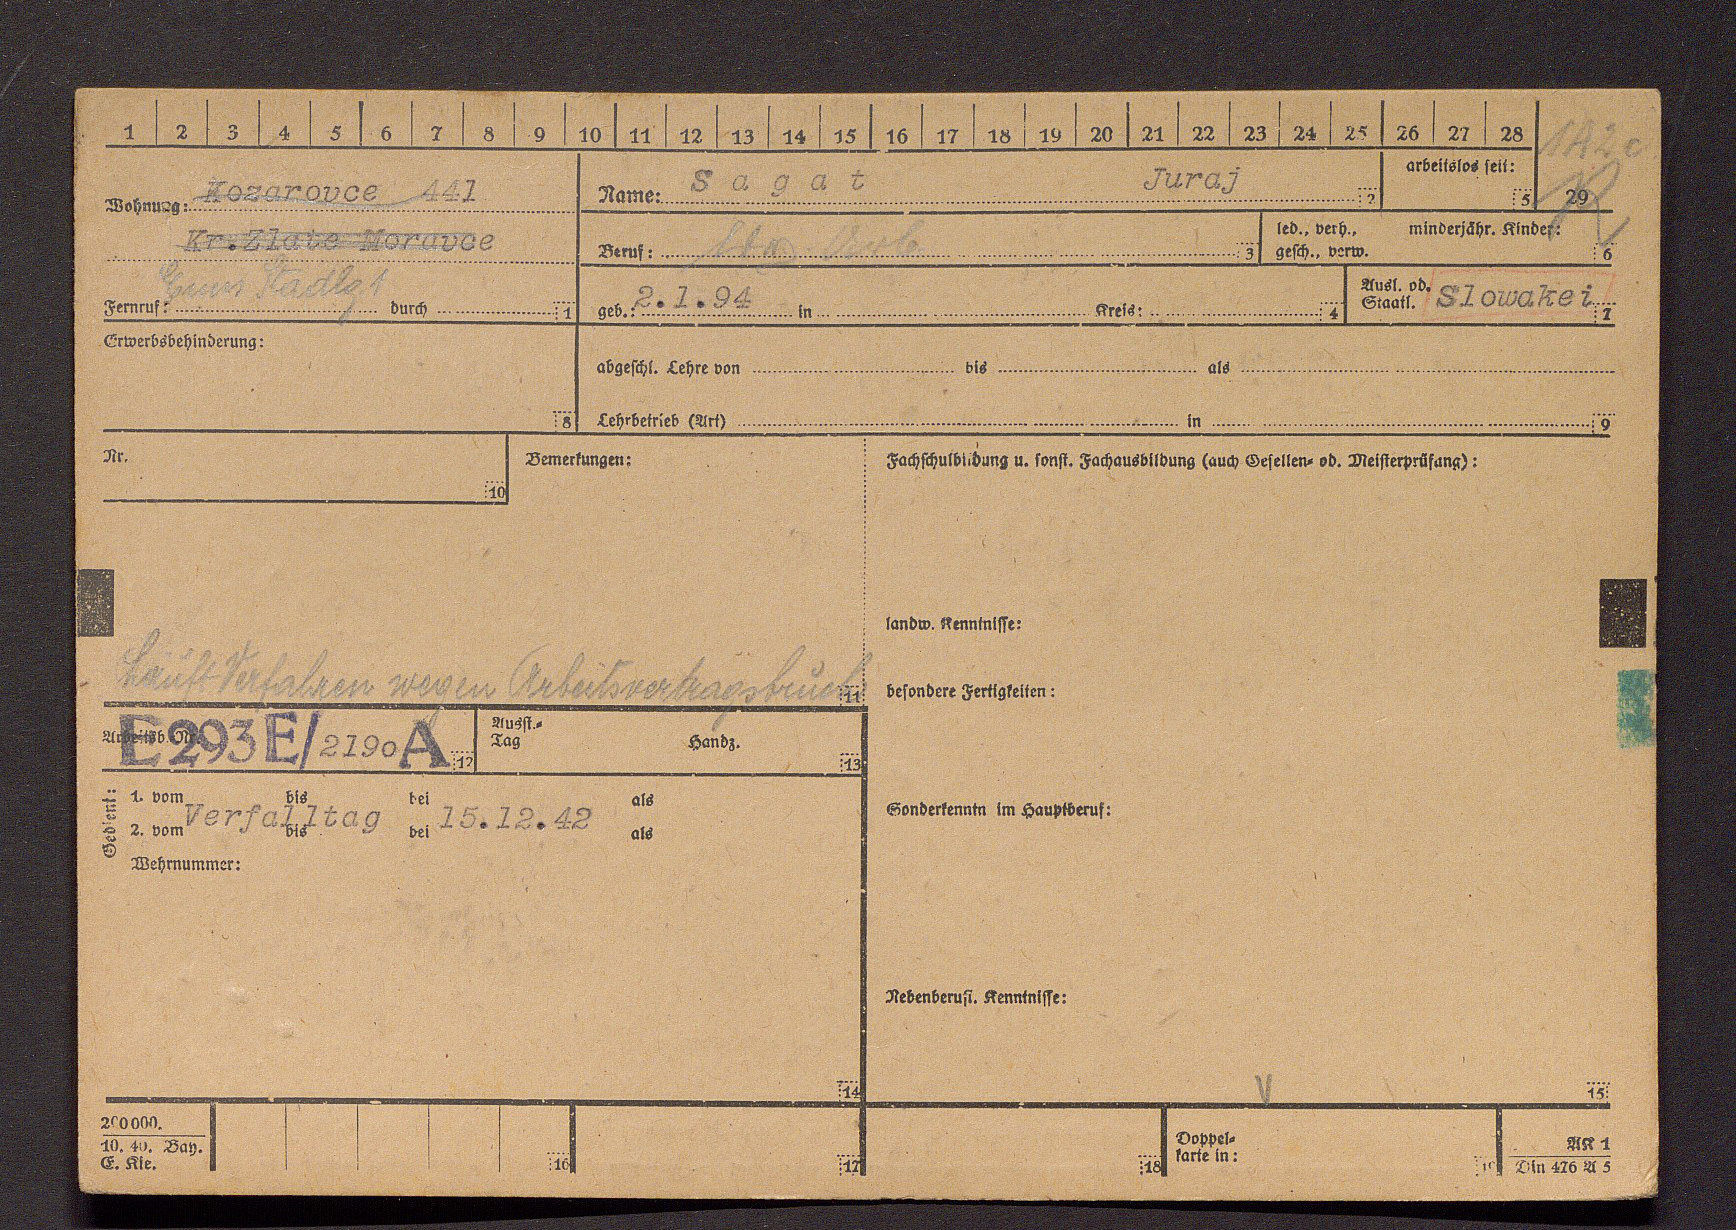 1 2 3 4 5 6 7 8 9 10 11 12 13 14 15 16 17 18 19 20 21 22 23 24 25 26 27 28
1A2c
29
Wohnung: Kozarovce 441
Kr. Zlate Moravce
Fernruf: durch 1
Name: Sagat Juraj 2
arbeitslos seit: 5
Beruf: 3
led., verh., gesch., verw.
minderjähr. Kinder: 6
geb.: 2.1.94 in Kreis: 4
Ausl. od. Staatl. Slowakei 7
Erwerbsbehinderung: 8
abgeschl. Lehre von bis als
Lehrbetrieb (Art) in 9
Nr. 10
Bemerkungen:
Läuft Verfahren wegen Arbeitsvertragsbruch 11
Fachschulbildung u. sonst. Fachausbildung (auch Gesellen- od. Meisterprüfung):
landw. Kenntnisse:
besondere Fertigkeiten:
Arbeitsb. Nr. E 293 E/2190 A 12
Ausst.-Tag Handz. 13
Gedient:
1. vom bis bei als
Verfalltag 15.12.42
2. vom bis bei als
Wehrnummer:
14
Sonderkenntn im Hauptberuf:
Nebenberufl. Kenntnisse:
V
15
200000.
10. 40. Bay.
E. Kle.
16
17
18
Doppel-
karte in:
19
AK 1
Din 476 A 5